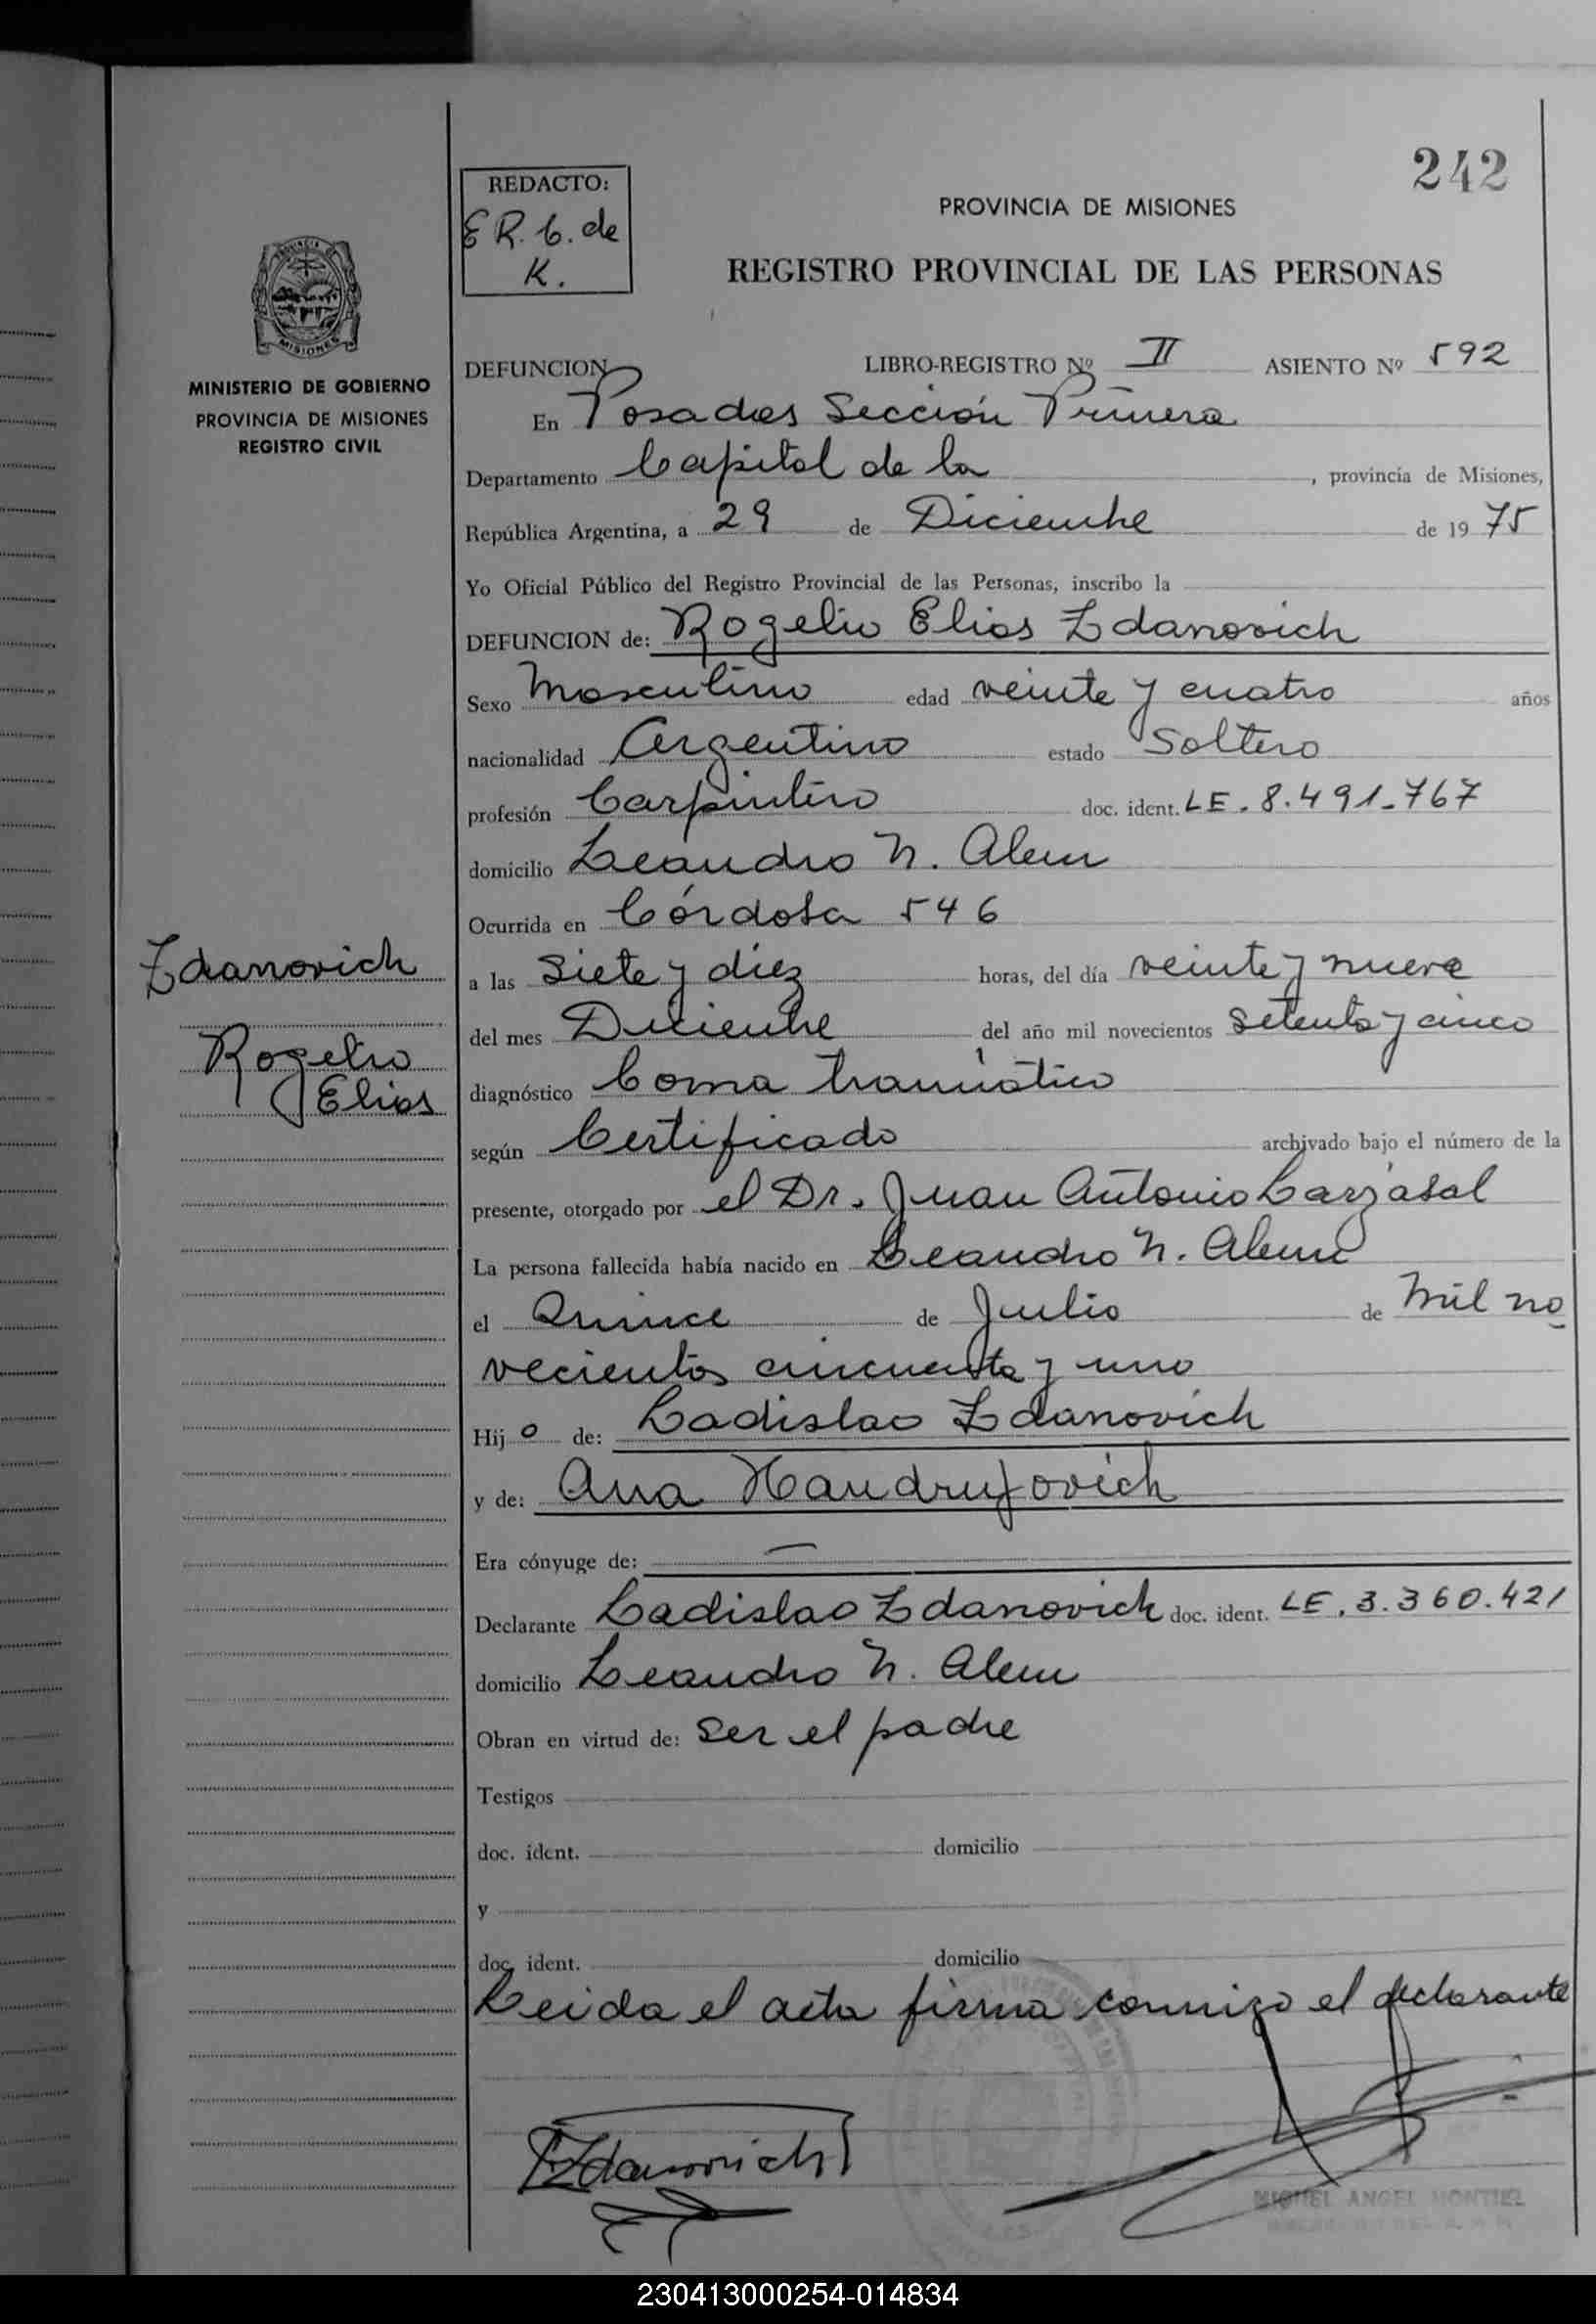 242
REDACTO:
E R. C. de
K.
PROVINCIA DE MISIONES
REGISTRO PROVINCIAL DE LAS PERSONAS
MISIONES
MINISTERIO DE GOBIERNO
PROVINCIA DE MISIONES
REGISTRO CIVIL
DEFUNCION LIBRO-REGISTRO Nº II ASIENTO Nº 592
En Posadas Sección Primera
Departamento Capital de la , provincia de Misiones,
República Argentina, a 29 de Diciembre de 1975
Yo Oficial Público del Registro Provincial de las Personas, inscribo la
DEFUNCION de: Rogelio Elias Zdanovich
Sexo Masculino edad veinte y cuatro años
nacionalidad Argentino estado Soltero
profesión Carpintero doc. ident. LE. 8.491.767
domicilio Leandro N. Alem
Ocurrida en Córdoba 546
Zdanovich
Rogelio
Elias
a las Siete y diez horas, del día veinte y nueve
del mes Diciembre del año mil novecientos setenta y cinco
diagnóstico Coma traumático
según Certificado archivado bajo el número de la
presente, otorgado por el Dr. Juan Antonio
La persona fallecida había nacido en Leandro N. Alem
el Quince de Julio de mil no
vecientos cincuenta y uno
Hijo de: Ladislao Zdanovich
y de: Ana
Era cónyuge de: —
Declarante Ladislao Zdanovich doc. ident. LE. 3.360.421
domicilio Leandro N. Alem
Obran en virtud de: Ser el padre
Testigos
doc. ident. domicilio
y
doc. ident. domicilio
Leida el acta firma conmigo el declarante
Zdanovich
MIGUEL ANGEL MONTIEL
230413000254-014834